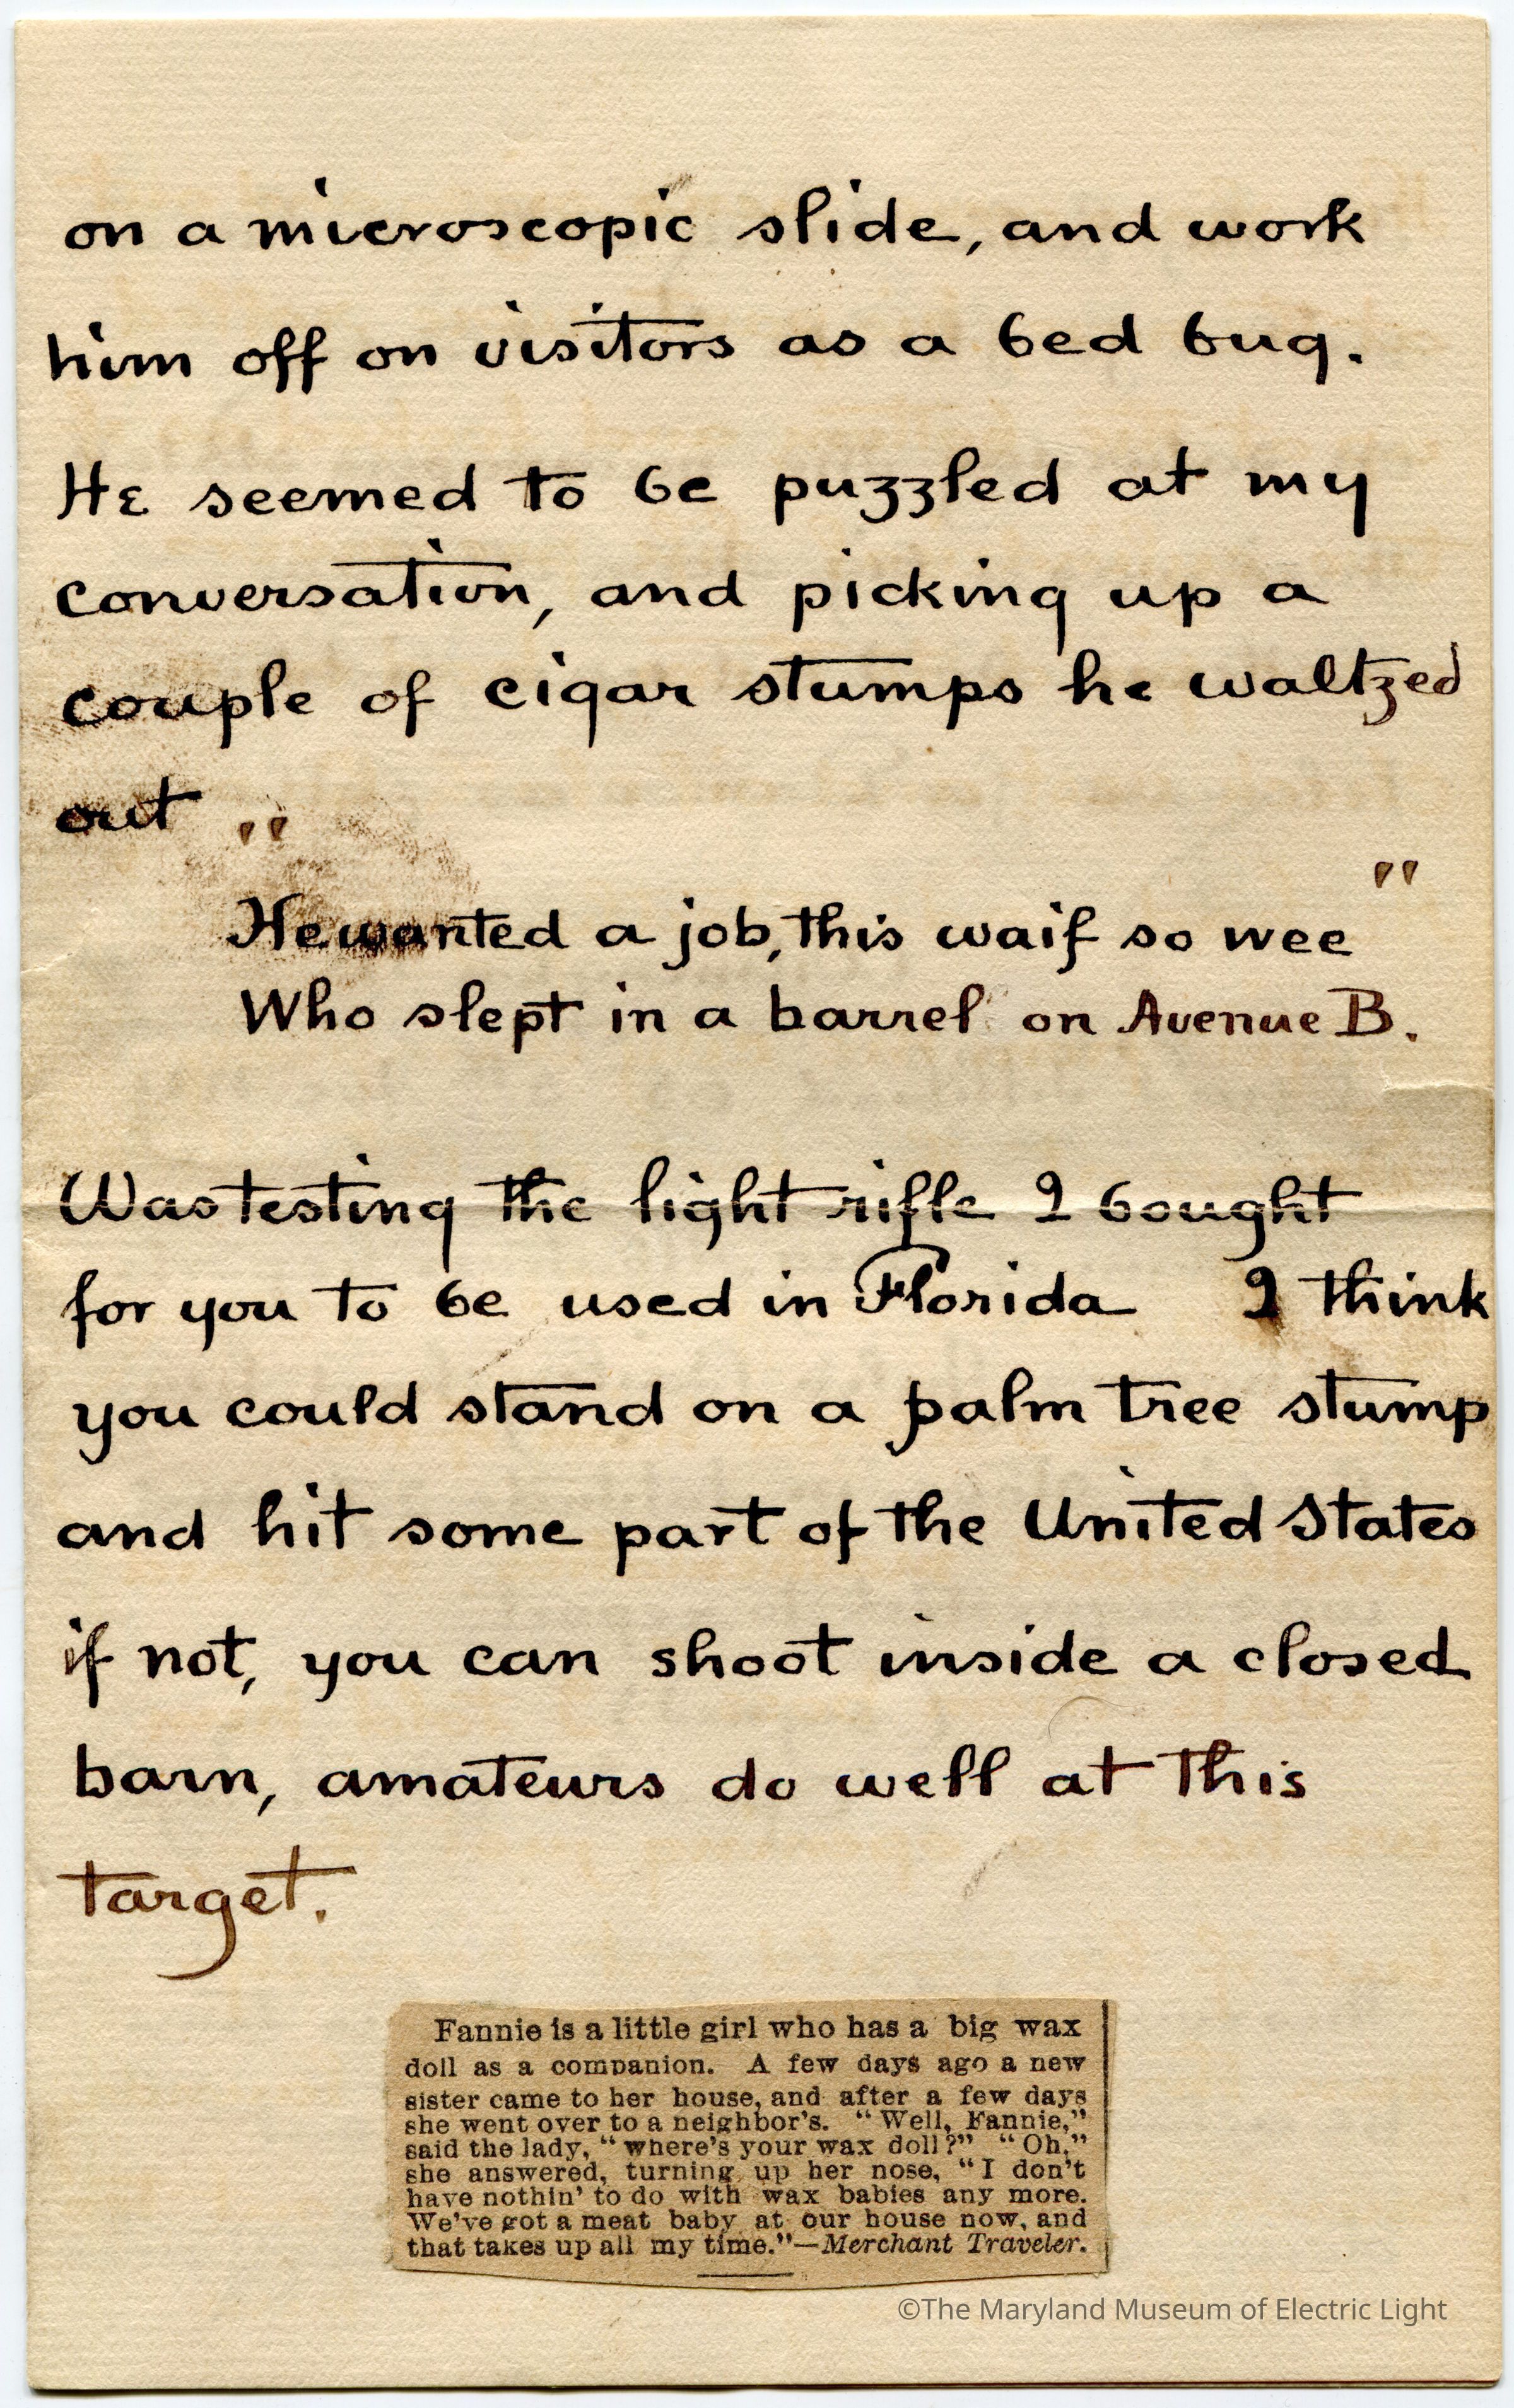 on a microscopic slide, and work
him off on visitors as a bed bug.
He seemed to be puzzled at my
conversation, and picking up a
couple of cigar stumps he waltzed
out "
"
He wanted a job, this waif so wee
Who slept in a barrel on Avenue B.
Was testing the light rifle I bought
for you to be used in Florida I think
you could stand on a palm tree stump
and hit some part of the United States
if not, you can shoot inside a closed
barn, amateurs do well at this
target.
Fannie is a little girl who has a big wax
doll as a companion. A few days ago a new
sister came to her house, and after a few days
she went over to a neighbor's. "Well, Fannie,"
said the lady, "where's your wax doll?" "Oh,"
she answered, turning up her nose, "I don't
have nothin' to do with wax babies any more.
We've got a meat baby at our house now, and
that takes up all my time."—Merchant Traveler.
©The Maryland Museum of Electric Light